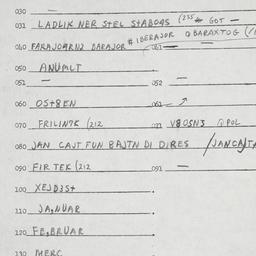 030
031 LADLIK NER STEL STABOQS (235 GOT —
040 FARAJOARN2 BARAJOR # IBERAJOR @ BARAXTOG 041 —
050 ANUMLT
051 — 052 —
060 OST8EN 062
070 FRILINTK (212 071 V8OSN3 @POL
080 JAN CAJT FUN BAJTN DI DIRES /JANCAJT
090 FIR TEK (212 091 —
100 XEJD3ST
110 JA,NUAR
120 FE,BRUAR
130 MERC